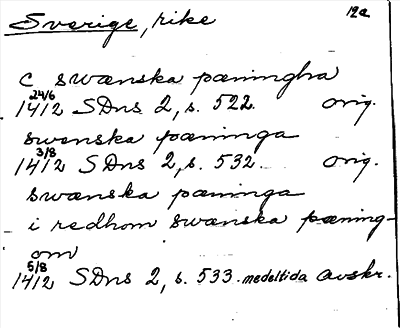 Sverige, rike 12a
c swænska pæningha
24/6
1412 SDns 2, s. 522. orig.
swenska pæninga
3/8
1412 SDns 2, s. 532. orig.
swænska pæninga
i redhom swænska pæning-
om
5/8
1412 SDns 2, s. 533. medeltida avskr.